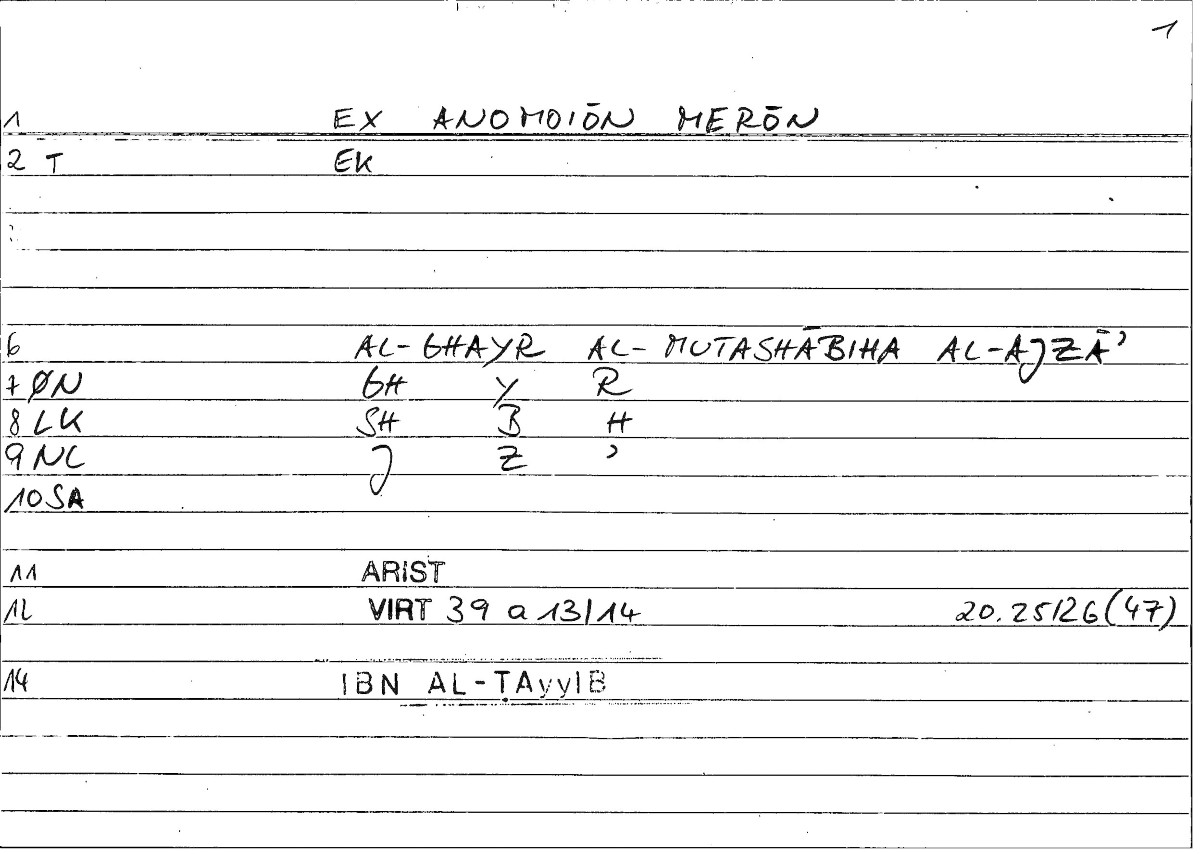 1
1 EX ANOMOIŌN MERŌN
2 T EK
6 AL-GHAYR AL-MUTASHĀBIHA AL-AJZĀ’
7 ØN GH Y R
8 LK SH B H
9 NC J Z ’
10 SA
11 ARIST
12 VIRT 39 a 13/14 20.25/26(47)
14 IBN AL-ṬAyyIB